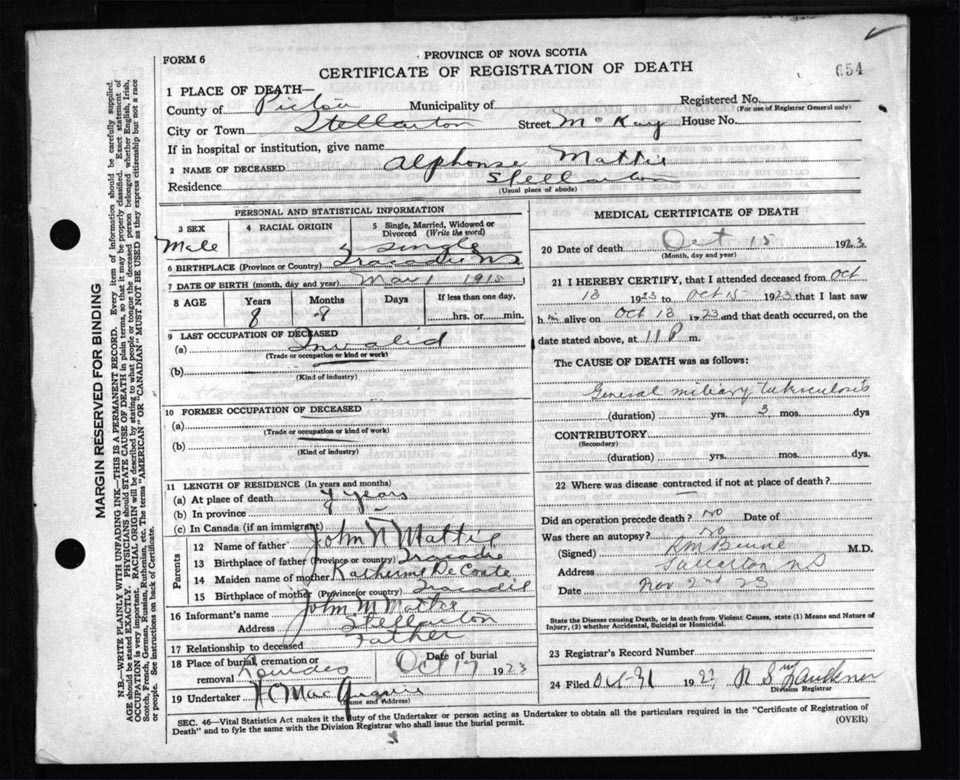 FORM 6
PROVINCE OF NOVA SCOTIA
CERTIFICATE OF REGISTRATION OF DEATH
654
1 PLACE OF DEATH—
County of Pictou Municipality of Registered No.
(For use of Registrar General only)
City or Town Stellarton Street McKay House No.
If in hospital or institution, give name
2 NAME OF DECEASED Alphonse Mattie
Residence Stellarton
(Usual place of abode)
PERSONAL AND STATISTICAL INFORMATION
3 SEX
Male
4 RACIAL ORIGIN
5 Single, Married, Widowed or Divorced (Write the word)
Single
6 BIRTHPLACE (Province or Country) Tracadie NS
7 DATE OF BIRTH (month, day and year) Mar 1 1915
8 AGE Years Months Days If less than one day,
8 8 hrs. or min.
9 LAST OCCUPATION OF DECEASED
(a) Invalid
(Trade or occupation or kind or work)
(b)
(Kind of industry)
10 FORMER OCCUPATION OF DECEASED
(a)
(Trade or occupation or kind of work)
(b)
(Kind of industry)
11 LENGTH OF RESIDENCE (In years and months)
(a) At place of death years
(b) In province
(c) In Canada (if an immigrant)
Parents
12 Name of father John Mattie
13 Birthplace of father (Province or country) Tracadie
14 Maiden name of mother Katherine DeCoste
15 Birthplace of mother (Province or country) Tracadie
16 Informant's name John M Mattie
Address Stellarton
17 Relationship to deceased Father
18 Place of burial, cremation or removal Lourdes Date of burial Oct 17 1923
19 Undertaker
(Name and Address)
MEDICAL CERTIFICATE OF DEATH
20 Date of death Oct 15 1923
(Month, day and year)
21 I HEREBY CERTIFY, that I attended deceased from Oct
13 1923 to Oct 15 1923 that I last saw
h alive on Oct 13 1923 and that death occurred, on
date stated above, at 11 P m.
The CAUSE OF DEATH was as follows:
General miliary tuberculosis
(duration) yrs. 3 mos. dys
CONTRIBUTORY
(Secondary)
(duration) yrs. mos. dys.
22 Where was disease contracted if not at place of death?
Did an operation precede death? no Date of
Was there an autopsy? no
(Signed) M.D.
Address Stellarton NS
Date Nov 2nd 23
State the Disease causing Death, or in death from Violent Causes, state (1) Means and Nature of Injury, (2) whether Accidental, Suicidal or Homicidal.
23 Registrar's Record Number
24 Filed Oct 31 1923
Division Registrar
SEC. 46—Vital Statistics Act makes it the duty of the Undertaker or person acting as Undertaker to obtain all the particulars required in the "Certificate of Registration of
Death" and to fyle the same with the Division Registrar who shall issue the burial permit. (OVER)
MARGIN RESERVED FOR BINDING
N.B.—WRITE PLAINLY WITH UNFADING INK—THIS IS A PERMANENT RECORD. Every item of information should be carefully supplied.
AGE should be stated EXACTLY. PHYSICIANS should STATE CAUSE OF DEATH in plain terms, so that it may be properly classified. Exact statement of
OCCUPATION is very important. RACIAL ORIGIN will be described by stating to what people or tongue the deceased person belonged whether English, Irish,
Scotch, French, German, Russian, Ruthenian, etc. The terms "AMERICAN" OR "CANADIAN" MUST NOT BE USED as they express citizenship but not a race
or people. See instructions on back of Certificate.